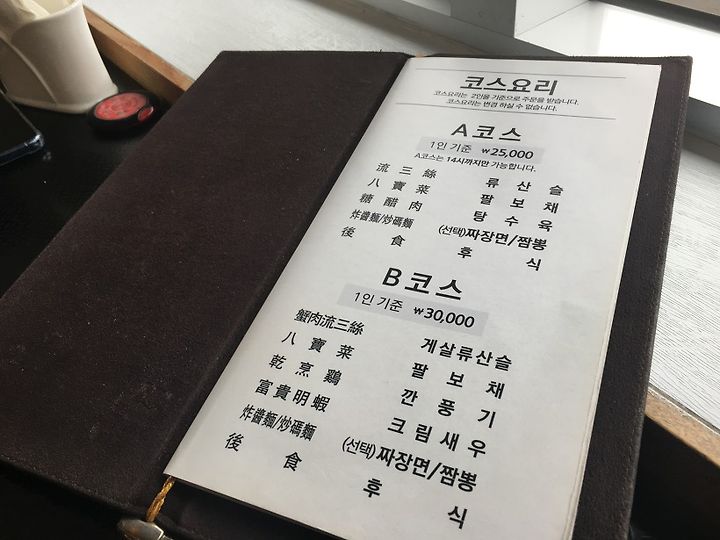 코스요리
코스요리는 2인을 기준으로 주문을 받습니다.
코스요리는 변경 하실 수 없습니다.
A코스
1인 기준 ₩25,000
A코스는 14시까지만 가능합니다.
流三絲 류산슬
八寶菜 팔보채
糖醋肉 탕수육
炸醬麵/炒碼麵 (선택)짜장면/짬뽕
後食 후식
B코스
1인 기준 ₩30,000
蟹肉流三絲 게살류산슬
八寶菜 팔보채
乾烹鷄 깐풍기
富貴明蝦 크림새우
炸醬麵/炒碼麵 (선택)짜장면/짬뽕
後食 후식